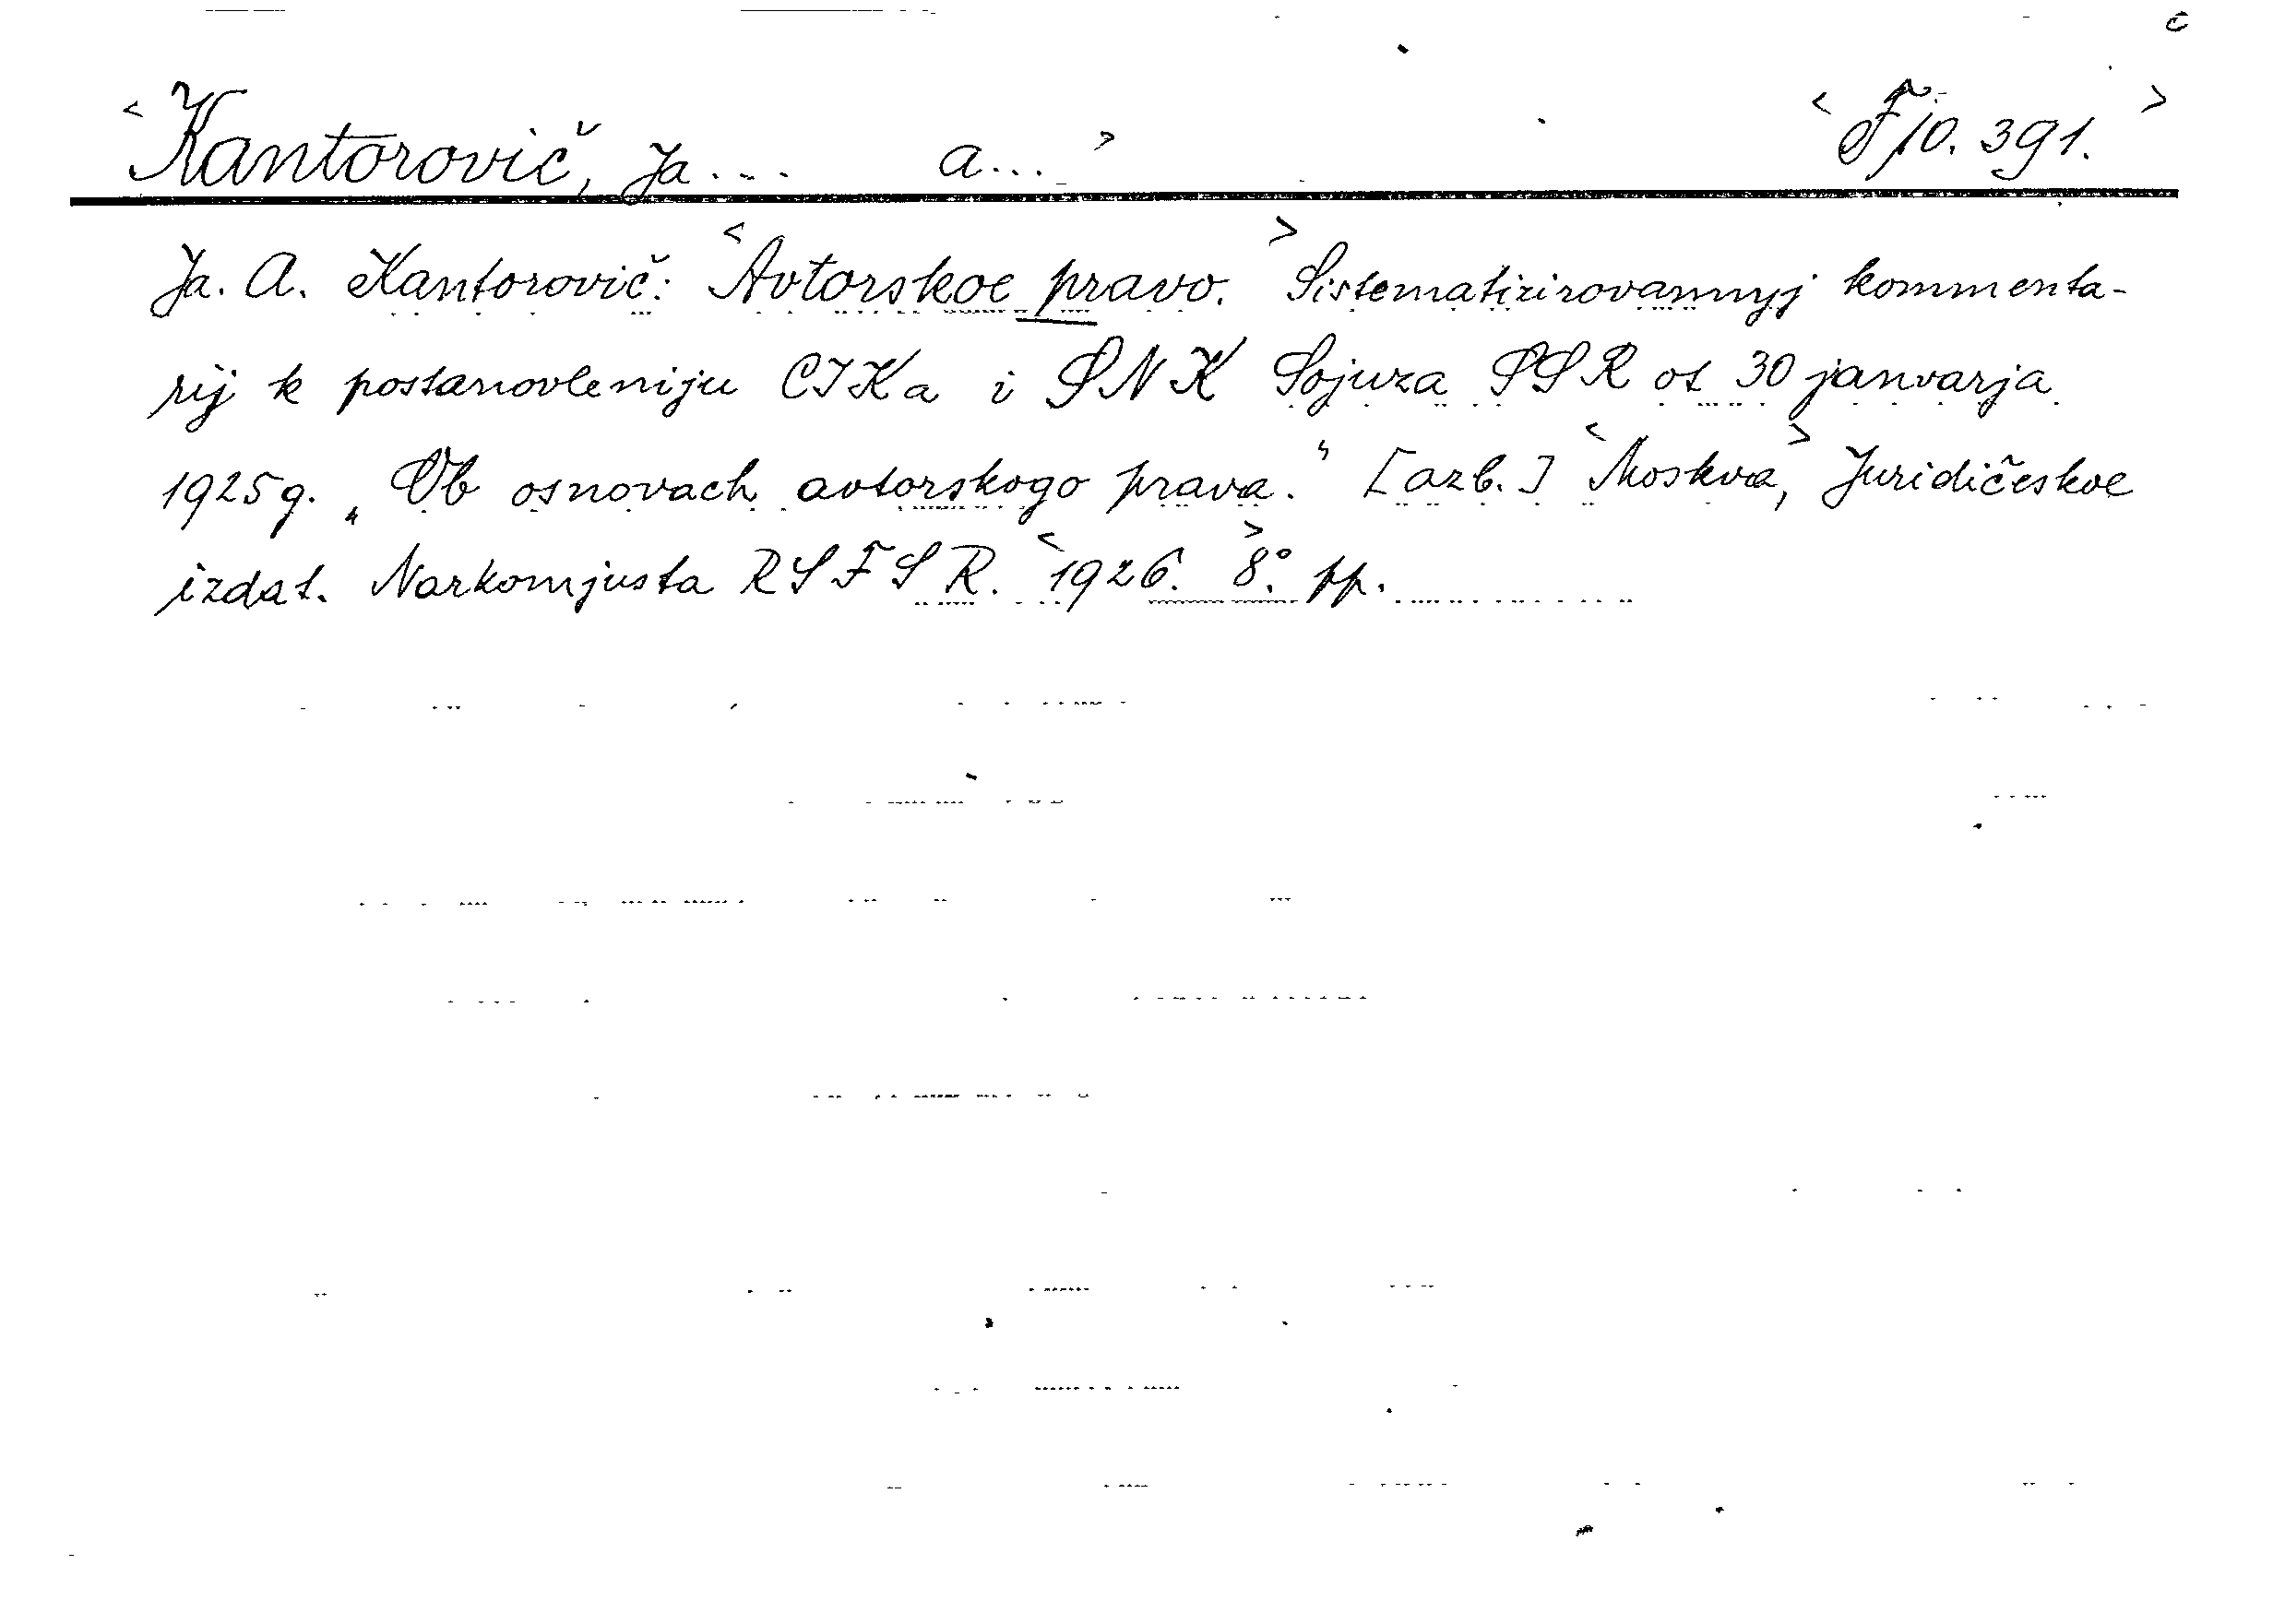 <Kantorovič, Ja... a...> <F 10. 391.>
Ja. A. Kantorovič: <Avtorskoe pravo.> Sistematizirovannyj kommenta-
rij k postanovleniju CIKa i SNK Sojuza SSR ot 30 janvarja
1925 g. „Ob osnovach avtorskogo prava." [azb.] <Moskva,> Juridičeskoe
izdat. Narkomjusta RSFSR. <1926. 8°.> pp.